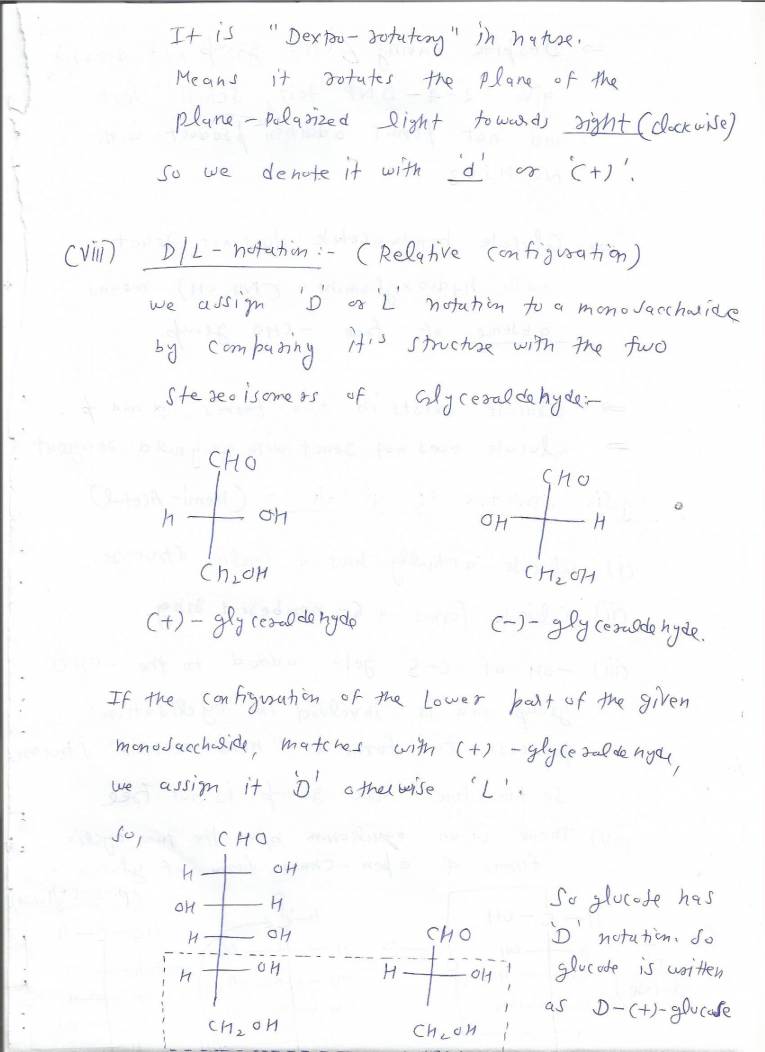 It is "Dextro-rotatory" in nature.
Means it rotates the plane of the
plane-polarized light towards right (clockwise)
So we denote it with 'd' or '(+)'.
(viii) D/L-notation:- (Relative configuration)
we assign 'D' or 'L' notation to a monosaccharide
by comparing it's structure with the two
stereoisomers of Glyceraldehyde:-
CHO
CHO
H OH
OH H
CH2OH
CH2OH
(+)-glyceraldehyde
(-)-glyceraldehyde.
If the configuration of the Lower part of the given
monosaccharide, matches with (+)-glyceraldehyde,
we assign it 'D' otherwise 'L'.
So,
CHO
H OH
OH H
H OH
H OH
CH2OH
CHO
H OH
CH2OH
So glucose has
'D' notation. So
glucose is written
as D-(+)-glucose